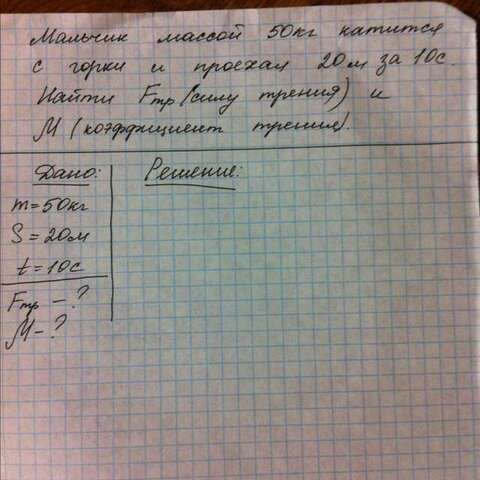 Мальчик массой 50кг катится
с горки и проехал 20м за 10с.
Найти Fтр (силу трения) и
M (коэффициент трения).
Дано:
m=50кг
S=20м
t=10с
Fтр - ?
M - ?
Решение: